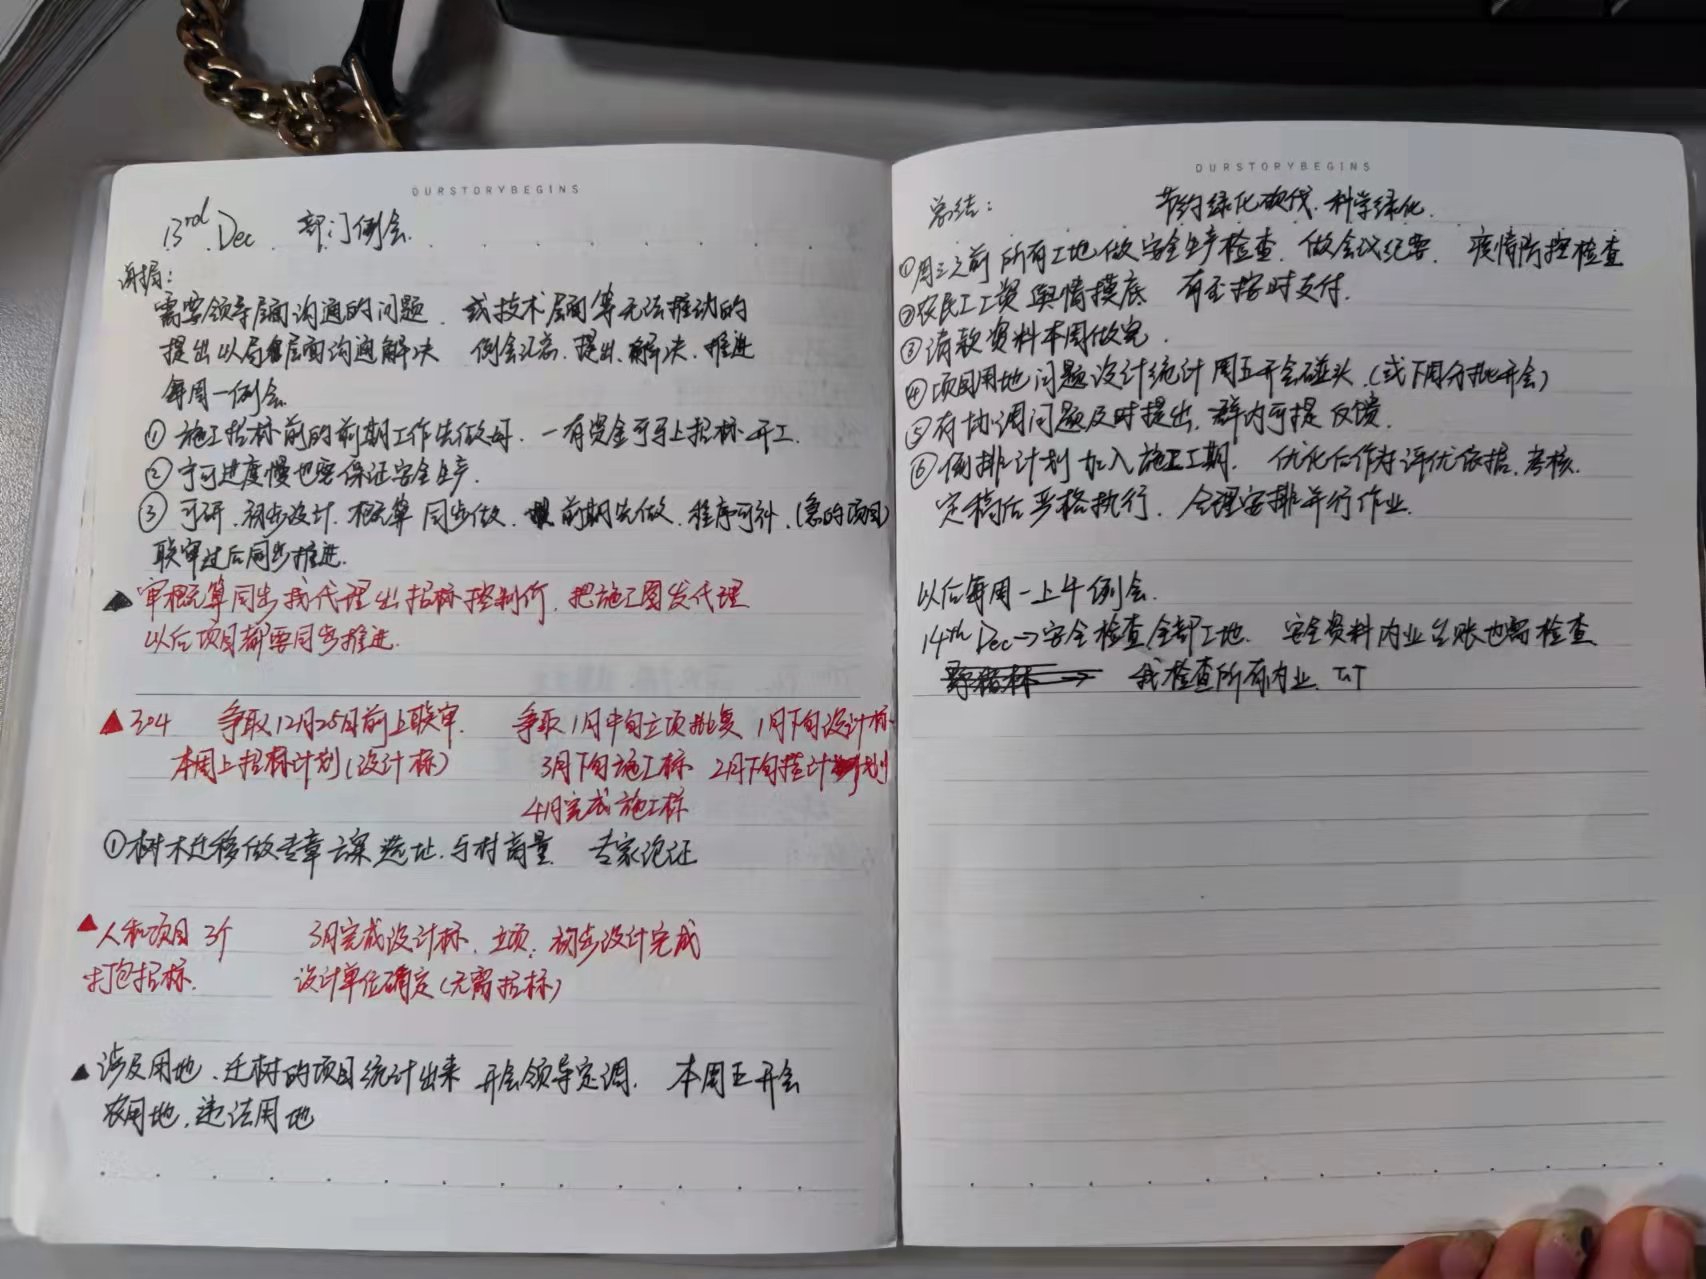 OURSTORYBEGINS
13rd Dec 部门例会
需要领导层面沟通的问题、或技术层面等无法推动的
提出以局层面沟通解决 例会汇总、提出、解决、推进
每周一例会
① 施工招标前的前期工作先做好、一有资金可马上招标开工.
② 宁可进度慢也要保证安全生产.
③ 可研、初步设计、概算同步做、前期先做、程序可补、(急的项目)
联审过后同步推进.
▲审概算同步找代理出招标控制价、把施工图发代理
以后项目都要同步推进.
▲304 争取12月25日前上联审. 争取1月中旬立项批复 1月下旬设计标
本周上招标计划(设计标) 3月下旬施工标 2月下旬招计划
4月完成施工标
①树木迁移做专章方案 选址、与村商量. 专家论证
▲人和项目 3个 3月完成设计标、立项、初步设计完成
打包招标. 设计单位确定(无需招标)
▲涉及用地、迁树的项目统计出来 开会领导定调. 本周五开会
农用地、违法用地
OURSTORYBEGINS
总结: 节约绿化砍伐、科学绿化.
①周三之前所有工地做安全生产检查、做会议纪要. 疫情防控检查
②农民工工资舆情摸底 有否按时支付.
③请款资料本周做完.
④项目用地问题设计统计 周五开会碰头(或下周分批开会)
⑤有协调问题及时提出、群内可提反馈.
⑥倒排计划 加入施工工期. 优化后作为评优依据、考核.
定稿后严格执行、合理安排并行作业.
以后每周一上午例会.
14th Dec→安全检查全部工地. 安全资料内业台账也需检查
我检查所有内业. TT